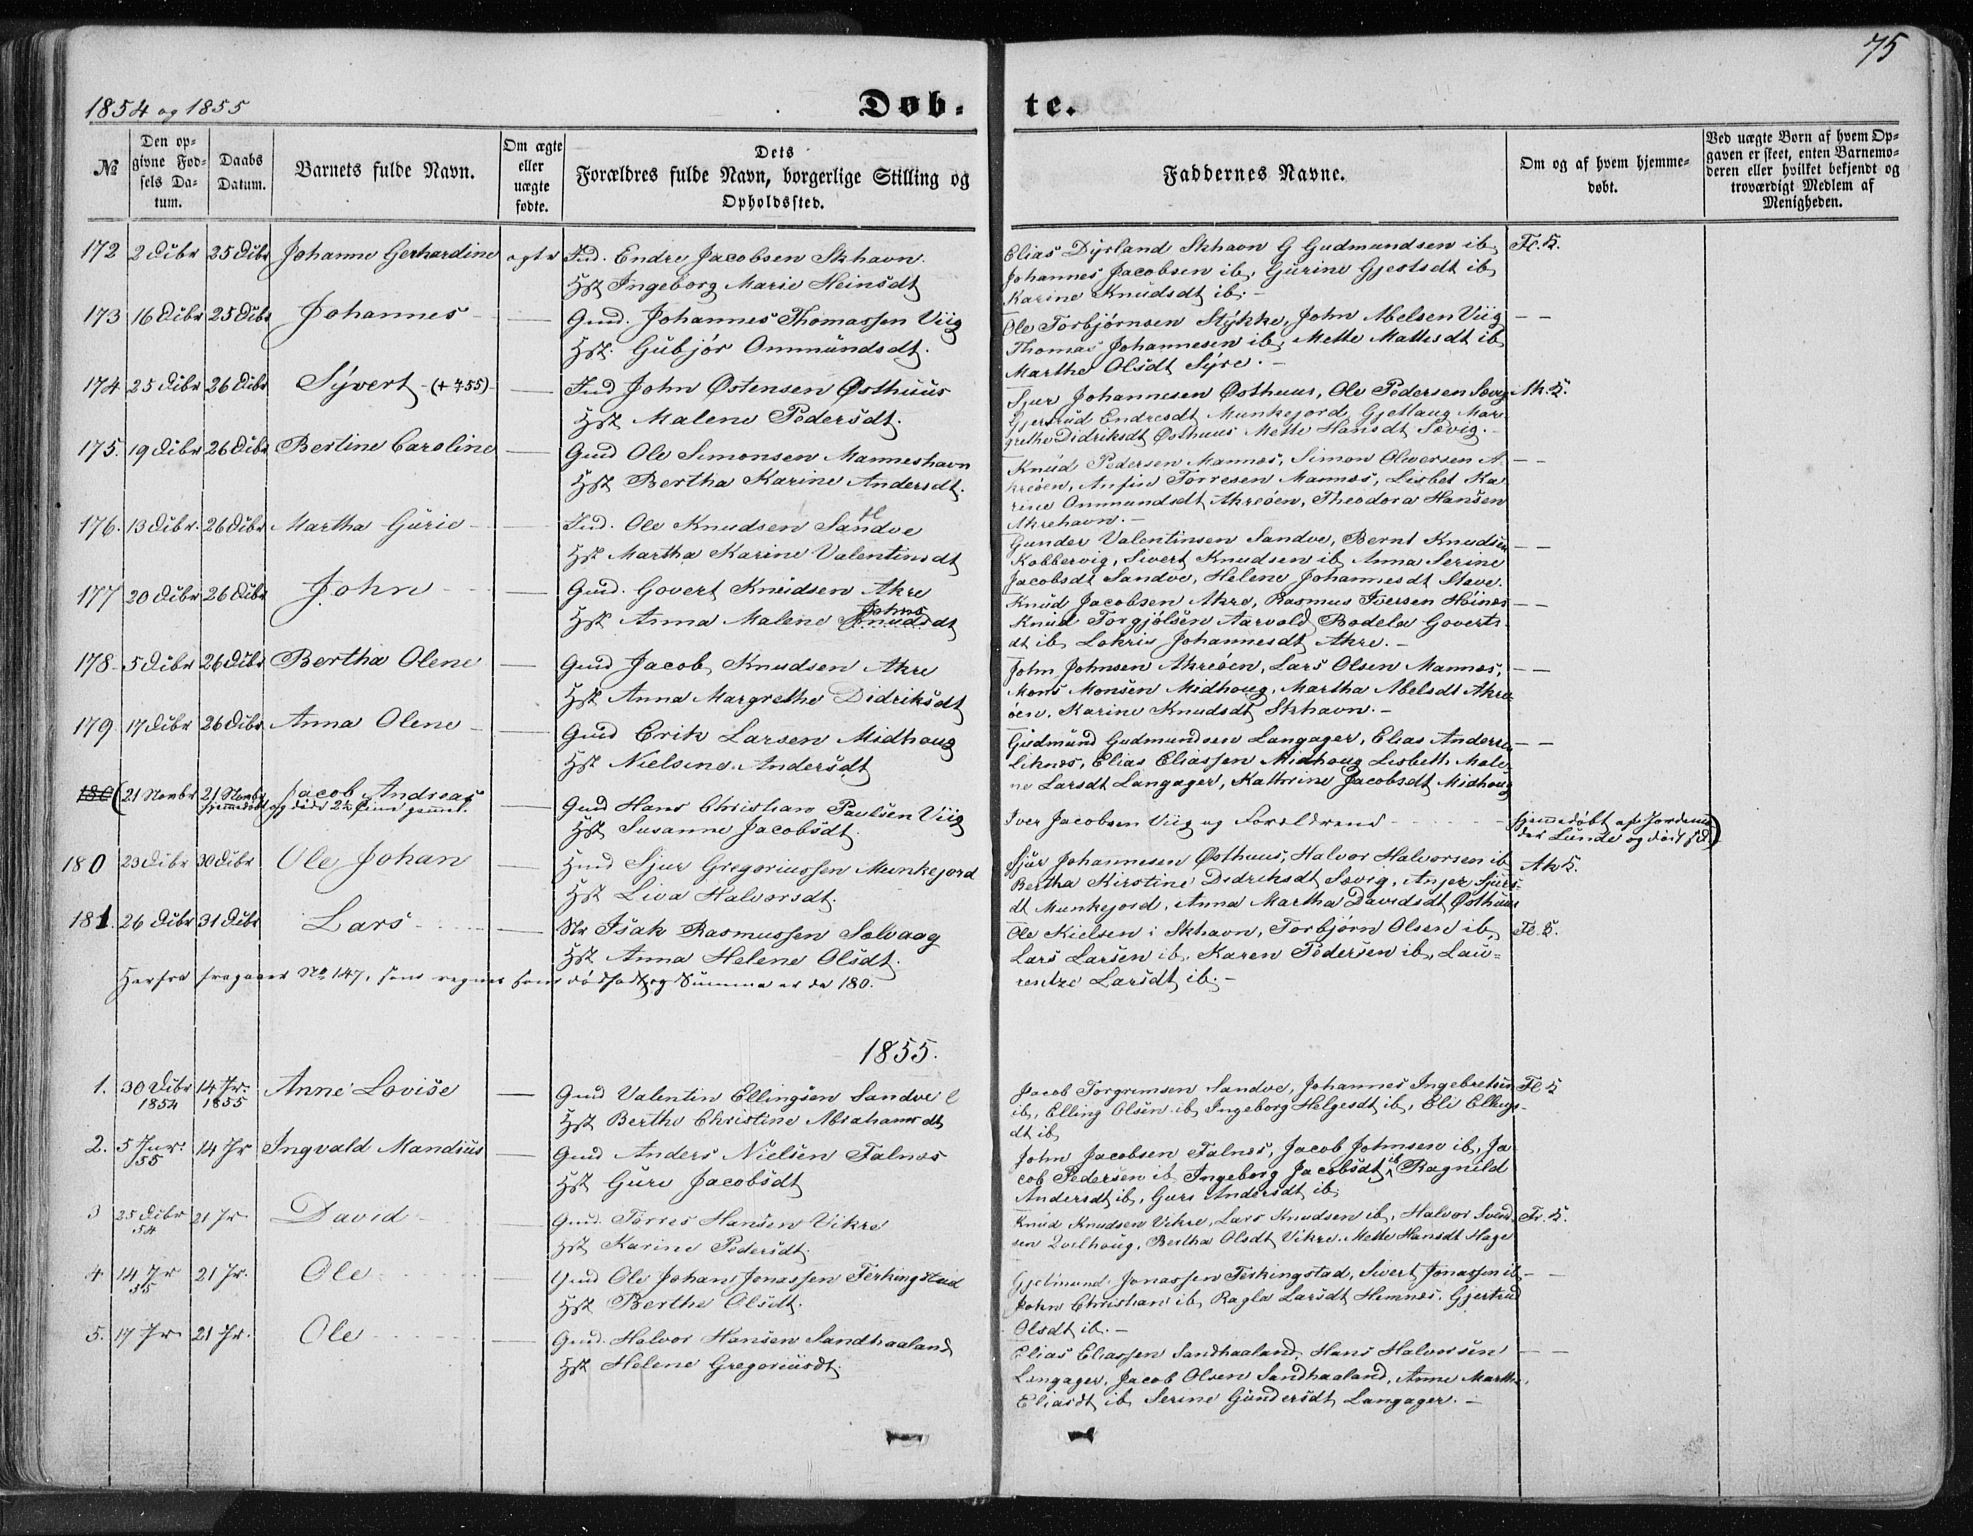 75
1854 og 1855
Døb-
te.
No
Den op-
givne Fød-
sels Da-
tum.
Daabs
Datum.
Barnets fulde Navn.
Om ægte
eller
uægte
fødte.
Dets
Forældres fulde Navn, borgerlige Stilling og
Opholdssted.
Faddernes Navne.
Om og af hvem hjemme-
døbt.
Ved uægte Børn af hvem Op-
gaven er skeet, enten Barnemo-
deren eller hvilket bekjendt og
troværdigt Medlem af
Menigheden.
172 2 Dibr 25 Dibr Johanne Gerhardine ægte Ind. Endre Jacobsen Skhavn.
Hst Ingeborg Marie Heinsdt
Elias Dyrland Skhavn G Gudmundsen ib,
Johannes Jacobsen ib, Gurine Gjestsdt ib,
Karine Knudsdt ib. -
Fl. K.
173 16 Dibr 25 Dibr Johannes — Gmd. Johannes Thomassen Viig
Hst. Gubjør Ommundsdt.
Ole Torbjørnsen Stykke, John Abelsen Viig
Thomas Johannesen ib, Mette Mattisdt ib
Marthe Olsdt Syre. -
— —
174 25 Dibr 26 Dibr Syvert (+ 755) — Ind John Østensen Østhuus
Hst Malene Pedersdt.
Sjur Johannesen Østhuus, Ole Pedersen Sævig
Gjertrud Endresdt Munkejord, Gjetlaug Mar-
grethe Didriksdt Østhuus Mette Hansdt Sævig. -
Ak. K.
175. 19 Dibr 26 Dibr Bertine Caroline — Gmd Ole Simonsen Manneshavn
Hst Bertha Karine Andersdt.
Knud Pedersen Mannes, Simon Oliversen A-
kreøen, Anfin Torresen Mannes, Lisbet Ka-
rine Ommundsdt Akreøen, Theodora Hansen
Akrehavn. -
— —
176. 13 Dibr. 26 Dibr Martha Gurie — Ind. Ole Knudsen Sandve
Hst Martha Karine Valentinsdt
Gunder Valentinsen Sandve, Bernt Knudsen
Kobbervig, Sivert Knudsen ib Anna Serine
Jacobsdt Sandve, Helene Johannesdt Stave.
— —
177 20 Dibr 26 Dibr John — Gmd. Govert Knudsen Akre
Johns
Hst Anna Malene Knudsdt
Knud Jacobsen Akre, Rasmus Iversen Høines
Knud Torgjølsen Aarvold, Bodela Goverts-
dt ib, Lokris Johannesdt Akre. -
— —
178 5 Dibr 26 Dibr Bertha Olene — Gmd Jacob Knudsen Akre
Hst Anna Margrethe Didriksdt
John Johnsen Akreøen, Lars Olsen Mannes,
Mons Monsen Midhoug, Martha Abelsdt Akre-
øen. Karine Knudsdt Skhavn. -
— —
179 17 Dibr 26 Dibr Anna Olene — Gmd Erik Larsen Midhoug
Hst Nielsine Andersdt
Gudmund Gudmundsen Langager, Elias Anderse
liknes, Elias Eliassen Midhoug Lisbeth Male-
ne Larsdt Langager, Kathrine Jacobsdt Midhoug
— —
180 (21 Novbr 21 Novbr Jacob Andreas
hjemmedøbt og døde 2½ Time gammel.
Gmd Hans Christian Paulsen Viig
Hst Susanne Jacobsdt.
Iver Jacobsen Viig og Forældrene
hjemmedøbt af Jordemo
der Lunde og død s.d.)
180 23 Dibr 30 Dibr Ole Johan — Hmd Sjur Gregoriussen Munkejord
Hst Liva Halvorsdt.
Sjur Johannesen Østhuus, Halvor Halvorsen ib
Bertha Kirstine Didriksdt Sævig, Anjer Sjurs-
dt Munkejord, Anna Martha Davidsdt Østhuus
Ak K.
181. 26 Dibr 31 Dibr Lars — Str Isak Rasmussen Solvaag
Hst Anna Helene Olsdt.
Ole Nielsen i Skhavn, Torbjørn Olsen ib,
Lars Larsen ib, Karen Pedersen ib, Lau-
rentze Larsdt ib. -
Fl. K.
Herfra fragaaer No 147, som regnes som dødfødt, og Summa er da 180.
1855.
1. 30 Dibr 14 Jr. Anne Lovise — Gmd Valentin Ellingsen Sandve
1854 1855
Hst Berthe Christine Abrahamsdt
Jacob Torgrimsen Sandve, Johannes Ingebretsen
ib, Elling Olsen ib Ingeborg Helgesdt ib, Eli Ellings-
dt ib
Fl K
2. 5 Janr. 14 Jr Ingvald Mandius — Gmd Anders Nielsen Falnes
55
Hst Gure Jacobsdt
John Jacobsen Falnes, Jacob Johnsen ib, Ja-
cob Pedersen ib Ingeborg Jacobsdt ib, Ragnild
Andersdt ib, Guri Andersdt ib.
3 25 Dibr 21 Jr. David — Gmd. Torres Hansen Vikre
54
Hst Karine Pedersdt.
Knud Knudsen Vikre, Lars Knudsen ib, Halvor Svend-
sen Qvelhoug, Bertha Olsdt Vikre. Mette Hansdt Hage
Fr. K.
4 14 Jr 21 Jr. Ole — Gmd Ole Johan Jonassen Ferkingstad
55
Hst Berthe Olsdt.
Gjetmund Jonassen Ferkingstad, Sivert Jonassen ib,
John Christian ib, Ragla Larsdt Hemnes. Gjertrud
Olsdt ib. -
— —
5. 17 Jr. 21 Jr. Ole — Gmd. Halvor Hansen Sandhaaland
Hst Helene Gregoriusdt.
Elias Eliassen Sandhaaland, Hans Halvorsen
Langager, Jacob Olsen Sandhaaland, Anne Marthe
Eliasdt ib, Serine Gundersdt Langager. -
— —